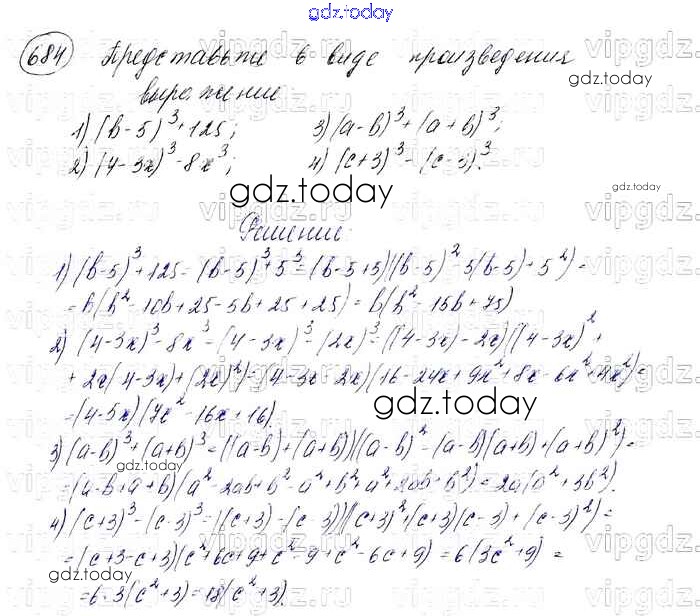 gdz.today
684 Представьте в виде произведения
выражение
1) (b-5)³+125; 3) (a-b)³+(a+b)³;
2) (4-3x)³-8x³; 4) (c+3)³-(c-3)³.
gdz.today
Решение.
1) (b-5)³+125=(b-5)³+5³=(b-5+5)((b-5)²-5(b-5)+5²)=
=b(b²-10b+25-5b+25+25)=b(b²-15b+75)
2) (4-3x)³-8x³=(4-3x)³-(2x)³=((4-3x)-2x)((4-3x)²+
+2x(4-3x)+(2x)²)=(4-3x-2x)(16-24x+9x²+8x-6x²+4x²)=
=(4-5x)(7x²-16x+16).
gdz.today
3) (a-b)³+(a+b)³=((a-b)+(a+b))((a-b)²-(a-b)(a+b)+(a+b)²)=
=(a-b+a+b)(a²-2ab+b²-a²+b²+a²+2ab+b²)=2a(a²+3b²).
4) (c+3)³-(c-3)³=((c+3)-(c-3))((c+3)²+(c+3)(c-3)+(c-3)²)=
=(c+3-c+3)(c²+6c+9+c²-9+c²-6c+9)=6(3c²+9)=
=6·3(c²+3)=18(c²+3).
gdz.today